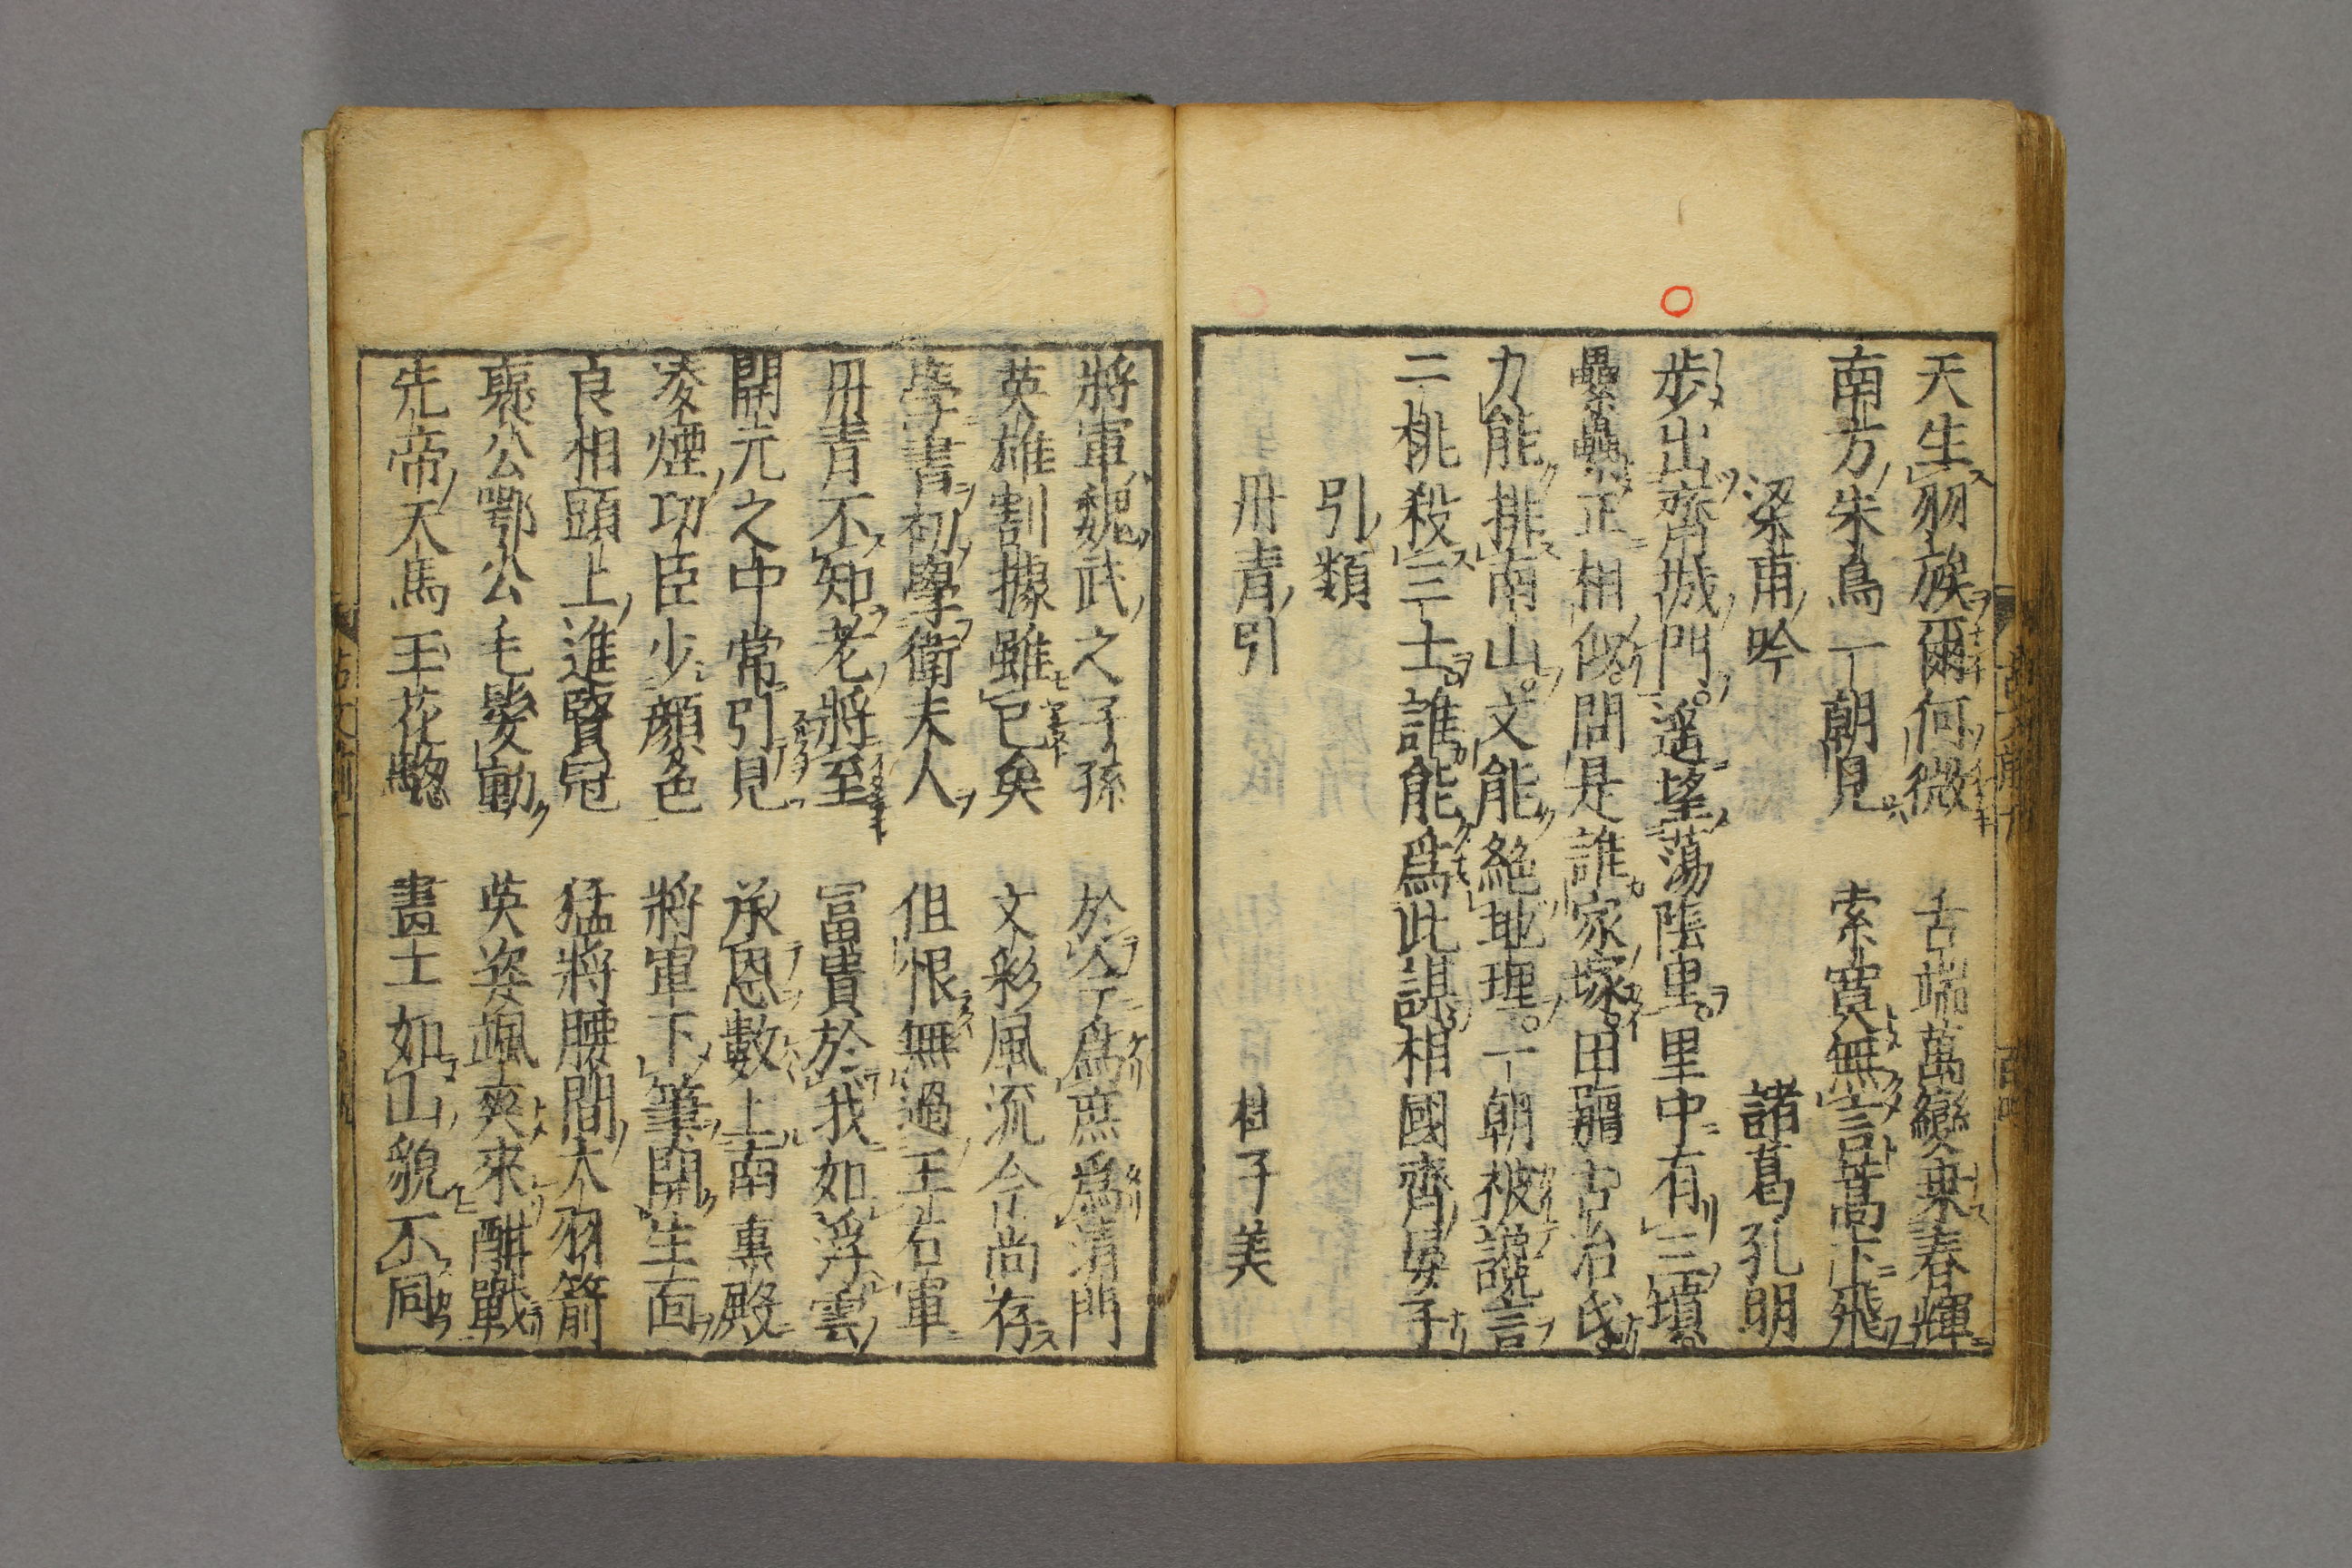 天生羽族爾何微　舌端萬變乗春輝
南方朱鳥一朝見　索寞無言蒿下飛
梁甫吟　諸葛孔明
歩出齊城門。遥望蕩隂里。里中有三墳。
纍纍正相似。問是誰家塚。田彊古冶氏。
力能排南山。文能絶地理。一朝被讒言
二桃殺三士。誰能爲此謀。相國齊晏子
引類
丹青引　杜子美
將軍魏武之子孫　於今爲庶爲清門
英雄割據雖已矣　文彩風流今尚存
學書初學衛夫人　但恨無過王右軍
丹青不知老將至　冨貴於我如浮雲
開元之中常引見　承恩數上南熏殿
凌煙功臣少顔色　將軍下筆開生面
良相頭上進賢冠　猛將腰間大羽箭
褒公鄂公毛髮動　英姿颯爽來酣戰
先帝天馬玉花驄　畫士如山貌不同